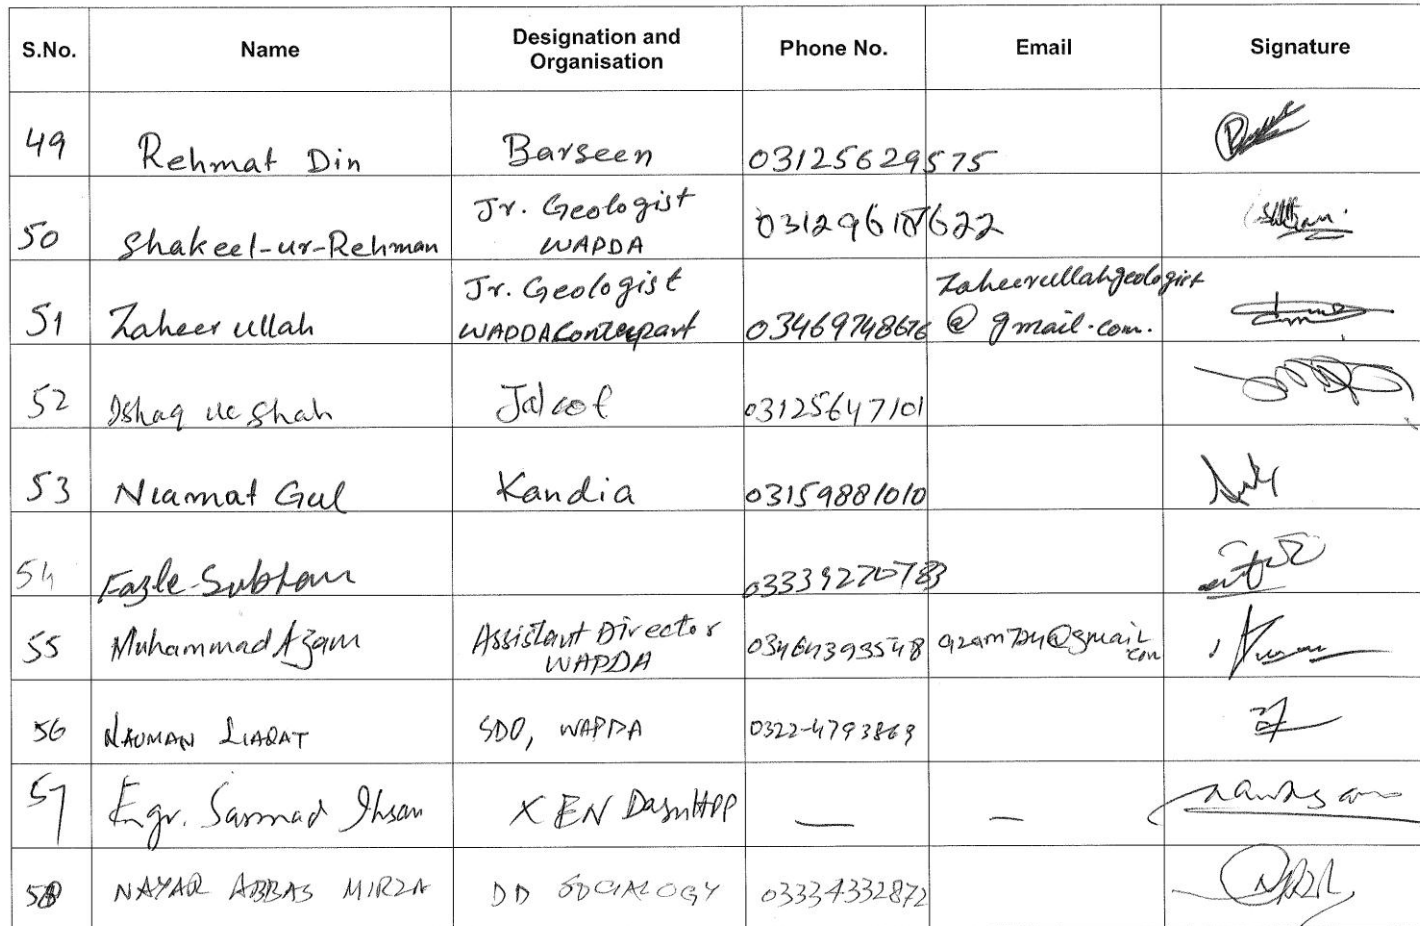 S.No. Name Designation and Organisation Phone No. Email Signature
49 Rehmat Din Barseen 03125629575
50 Shakeel-ur-Rehman Jr. Geologist WAPDA
51 Zaheer ullah Jr. Geologist WAPDA Conterpart 03469748676 Zaheerullahgeologist @gmail.com.
52 Shah 03125647101
53 Niamat Gul Kandia 03159881010
54 Fazle Subhan 03339270783
55 Muhammad Azam Assistant Director WAPDA 03464393548
56 NAUMAN LIAQAT SDO, WAPDA 0322-4793869
57 Engr. Sarmad Ihsan XEN — —
58 NAYAR ABBAS MIRZA DD SOCIALOGY 03334332872